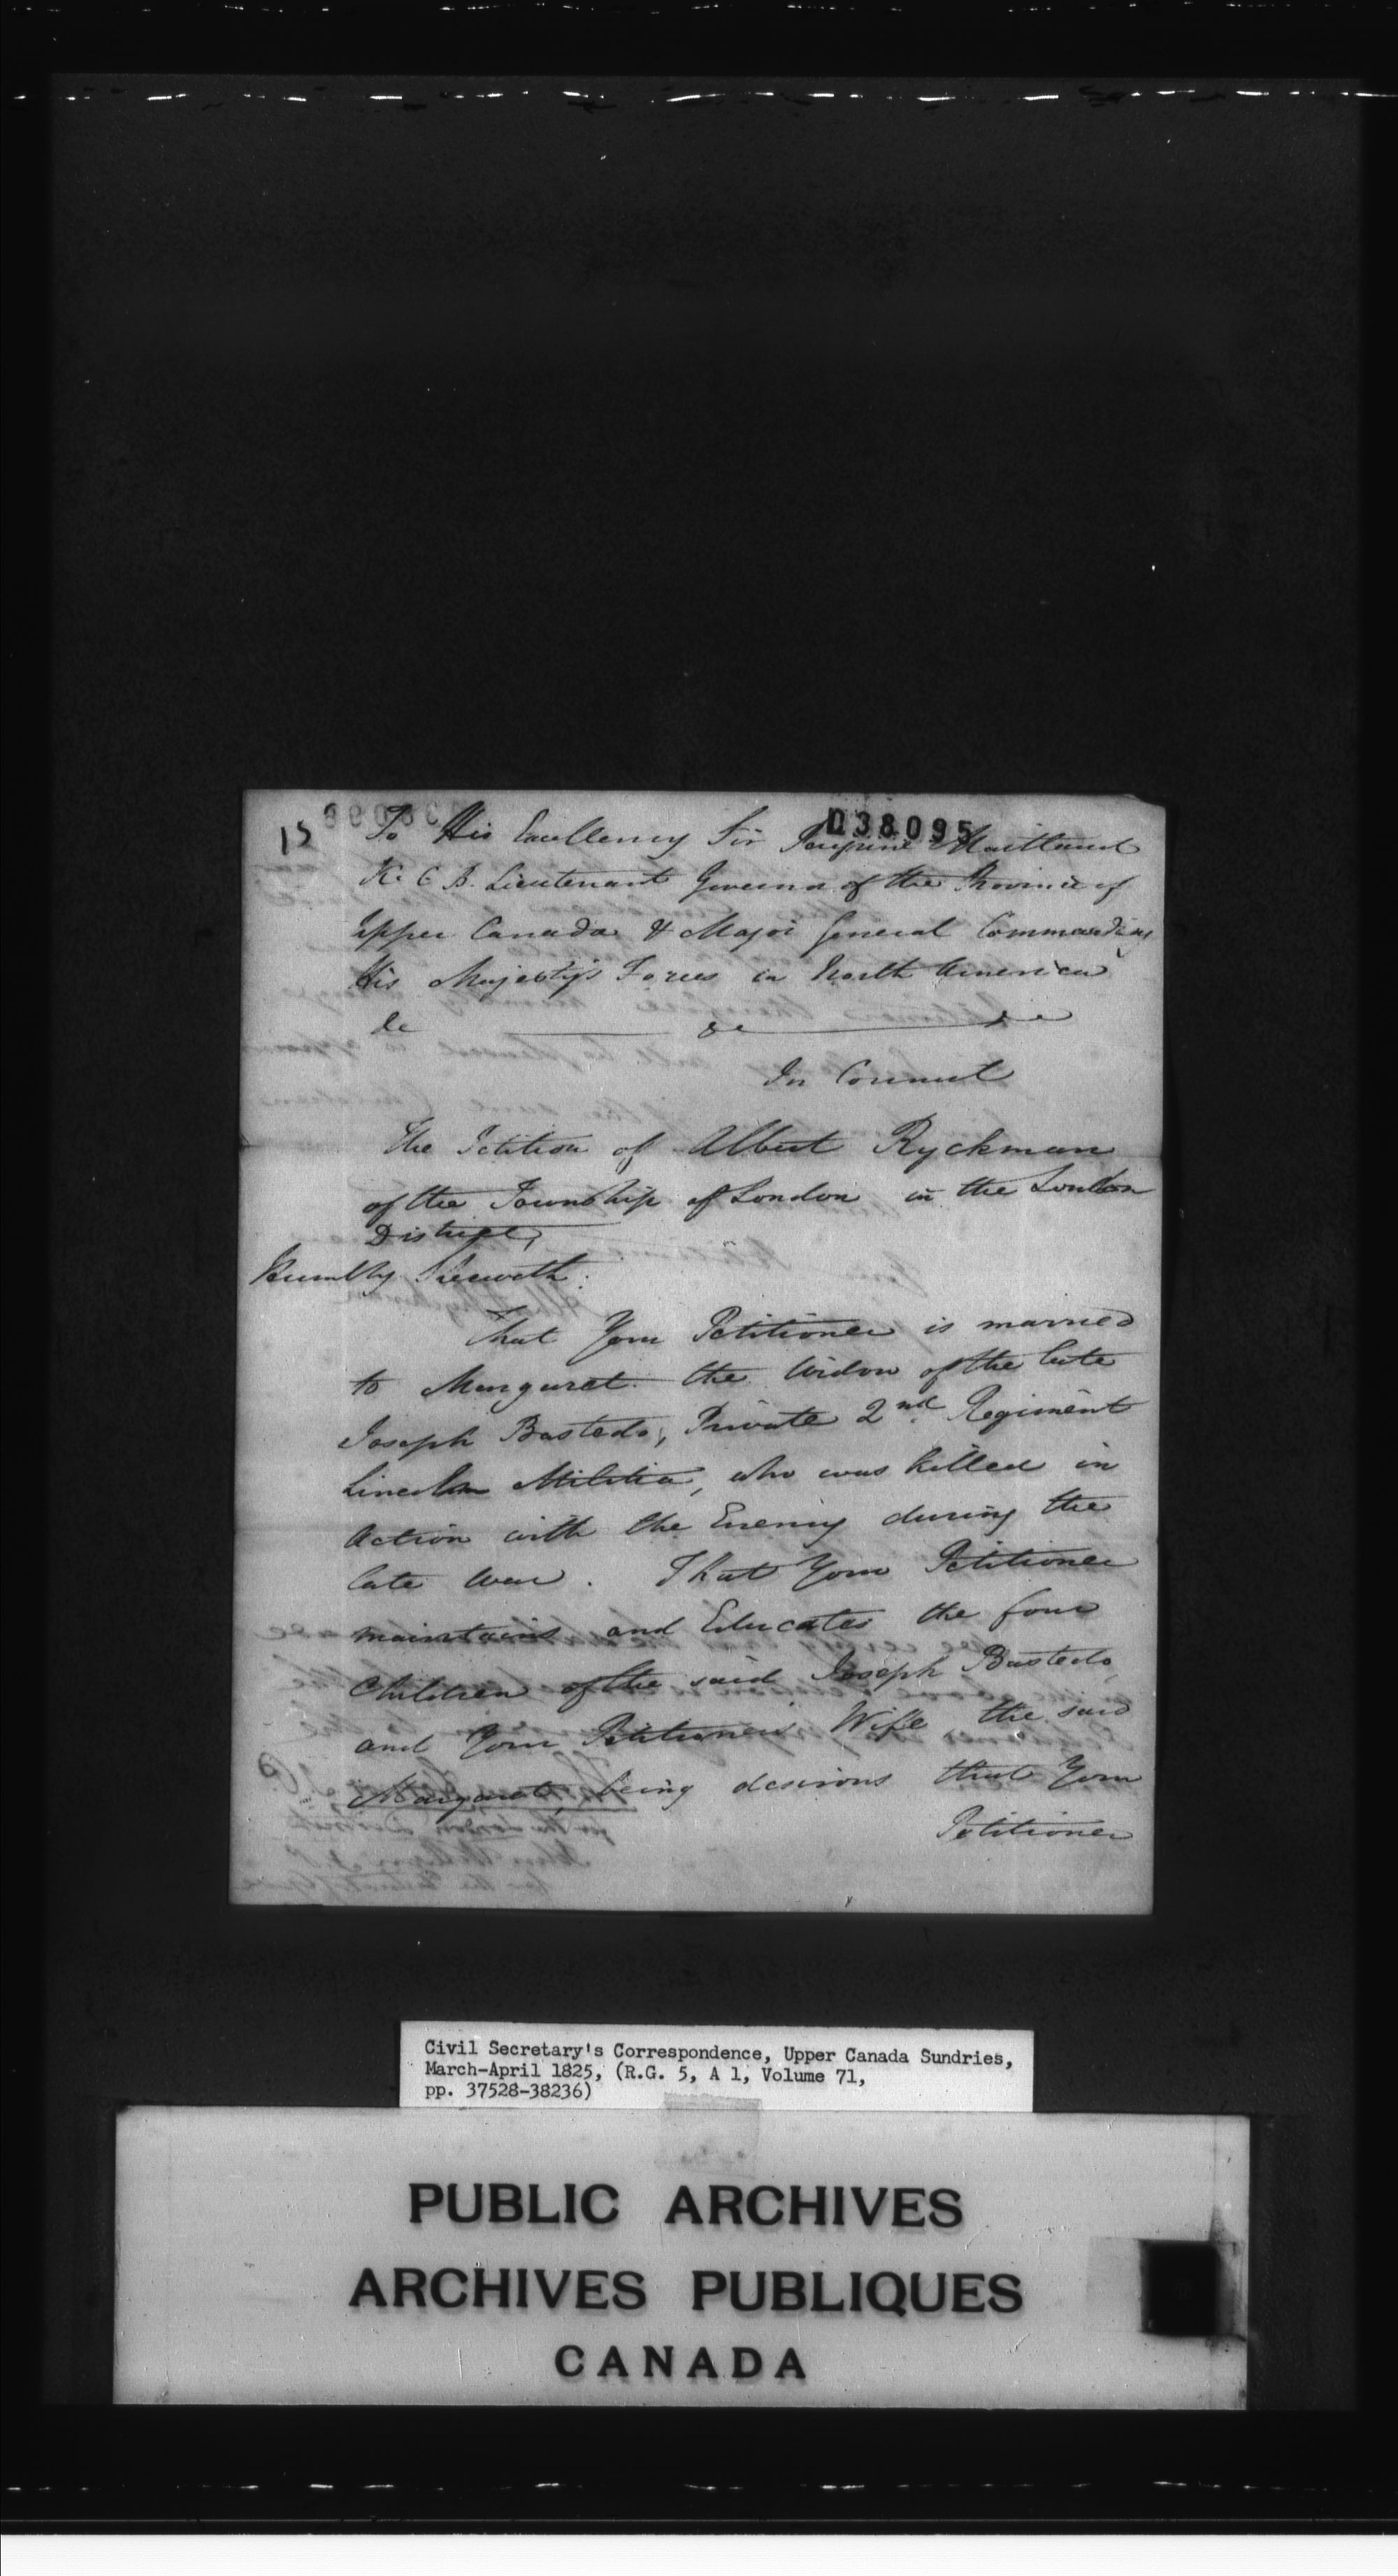 15
D38095
To His Excellency Sir Peregrine Maitland
K. C B. Lieutenant Governor of the Province of
Upper Canada & Major General Commanding
His Majesty's Forces in North America
&c &c &c
In Council
The Petition of Albert Ryckman
of the Township of London in the London
District,
Humbly Sheweth:
That Your Petitioner is married
to Margaret the Widow of the late
Joseph Bastedo, Private 2nd Regiment
Lincoln Militia, who was killed in
Action with the Enemy during the
late War. That Your Petitioner
maintains and Educates the four
Children of the said Joseph Bastedo,
and Your Petitioners Wife the said
Margaret, being desirous that Your
Petitioner
Civil Secretary's Correspondence, Upper Canada Sundries,
March-April 1825, (R.G. 5, A 1, Volume 71,
pp. 37528-38236)
PUBLIC ARCHIVES
ARCHIVES PUBLIQUES
CANADA